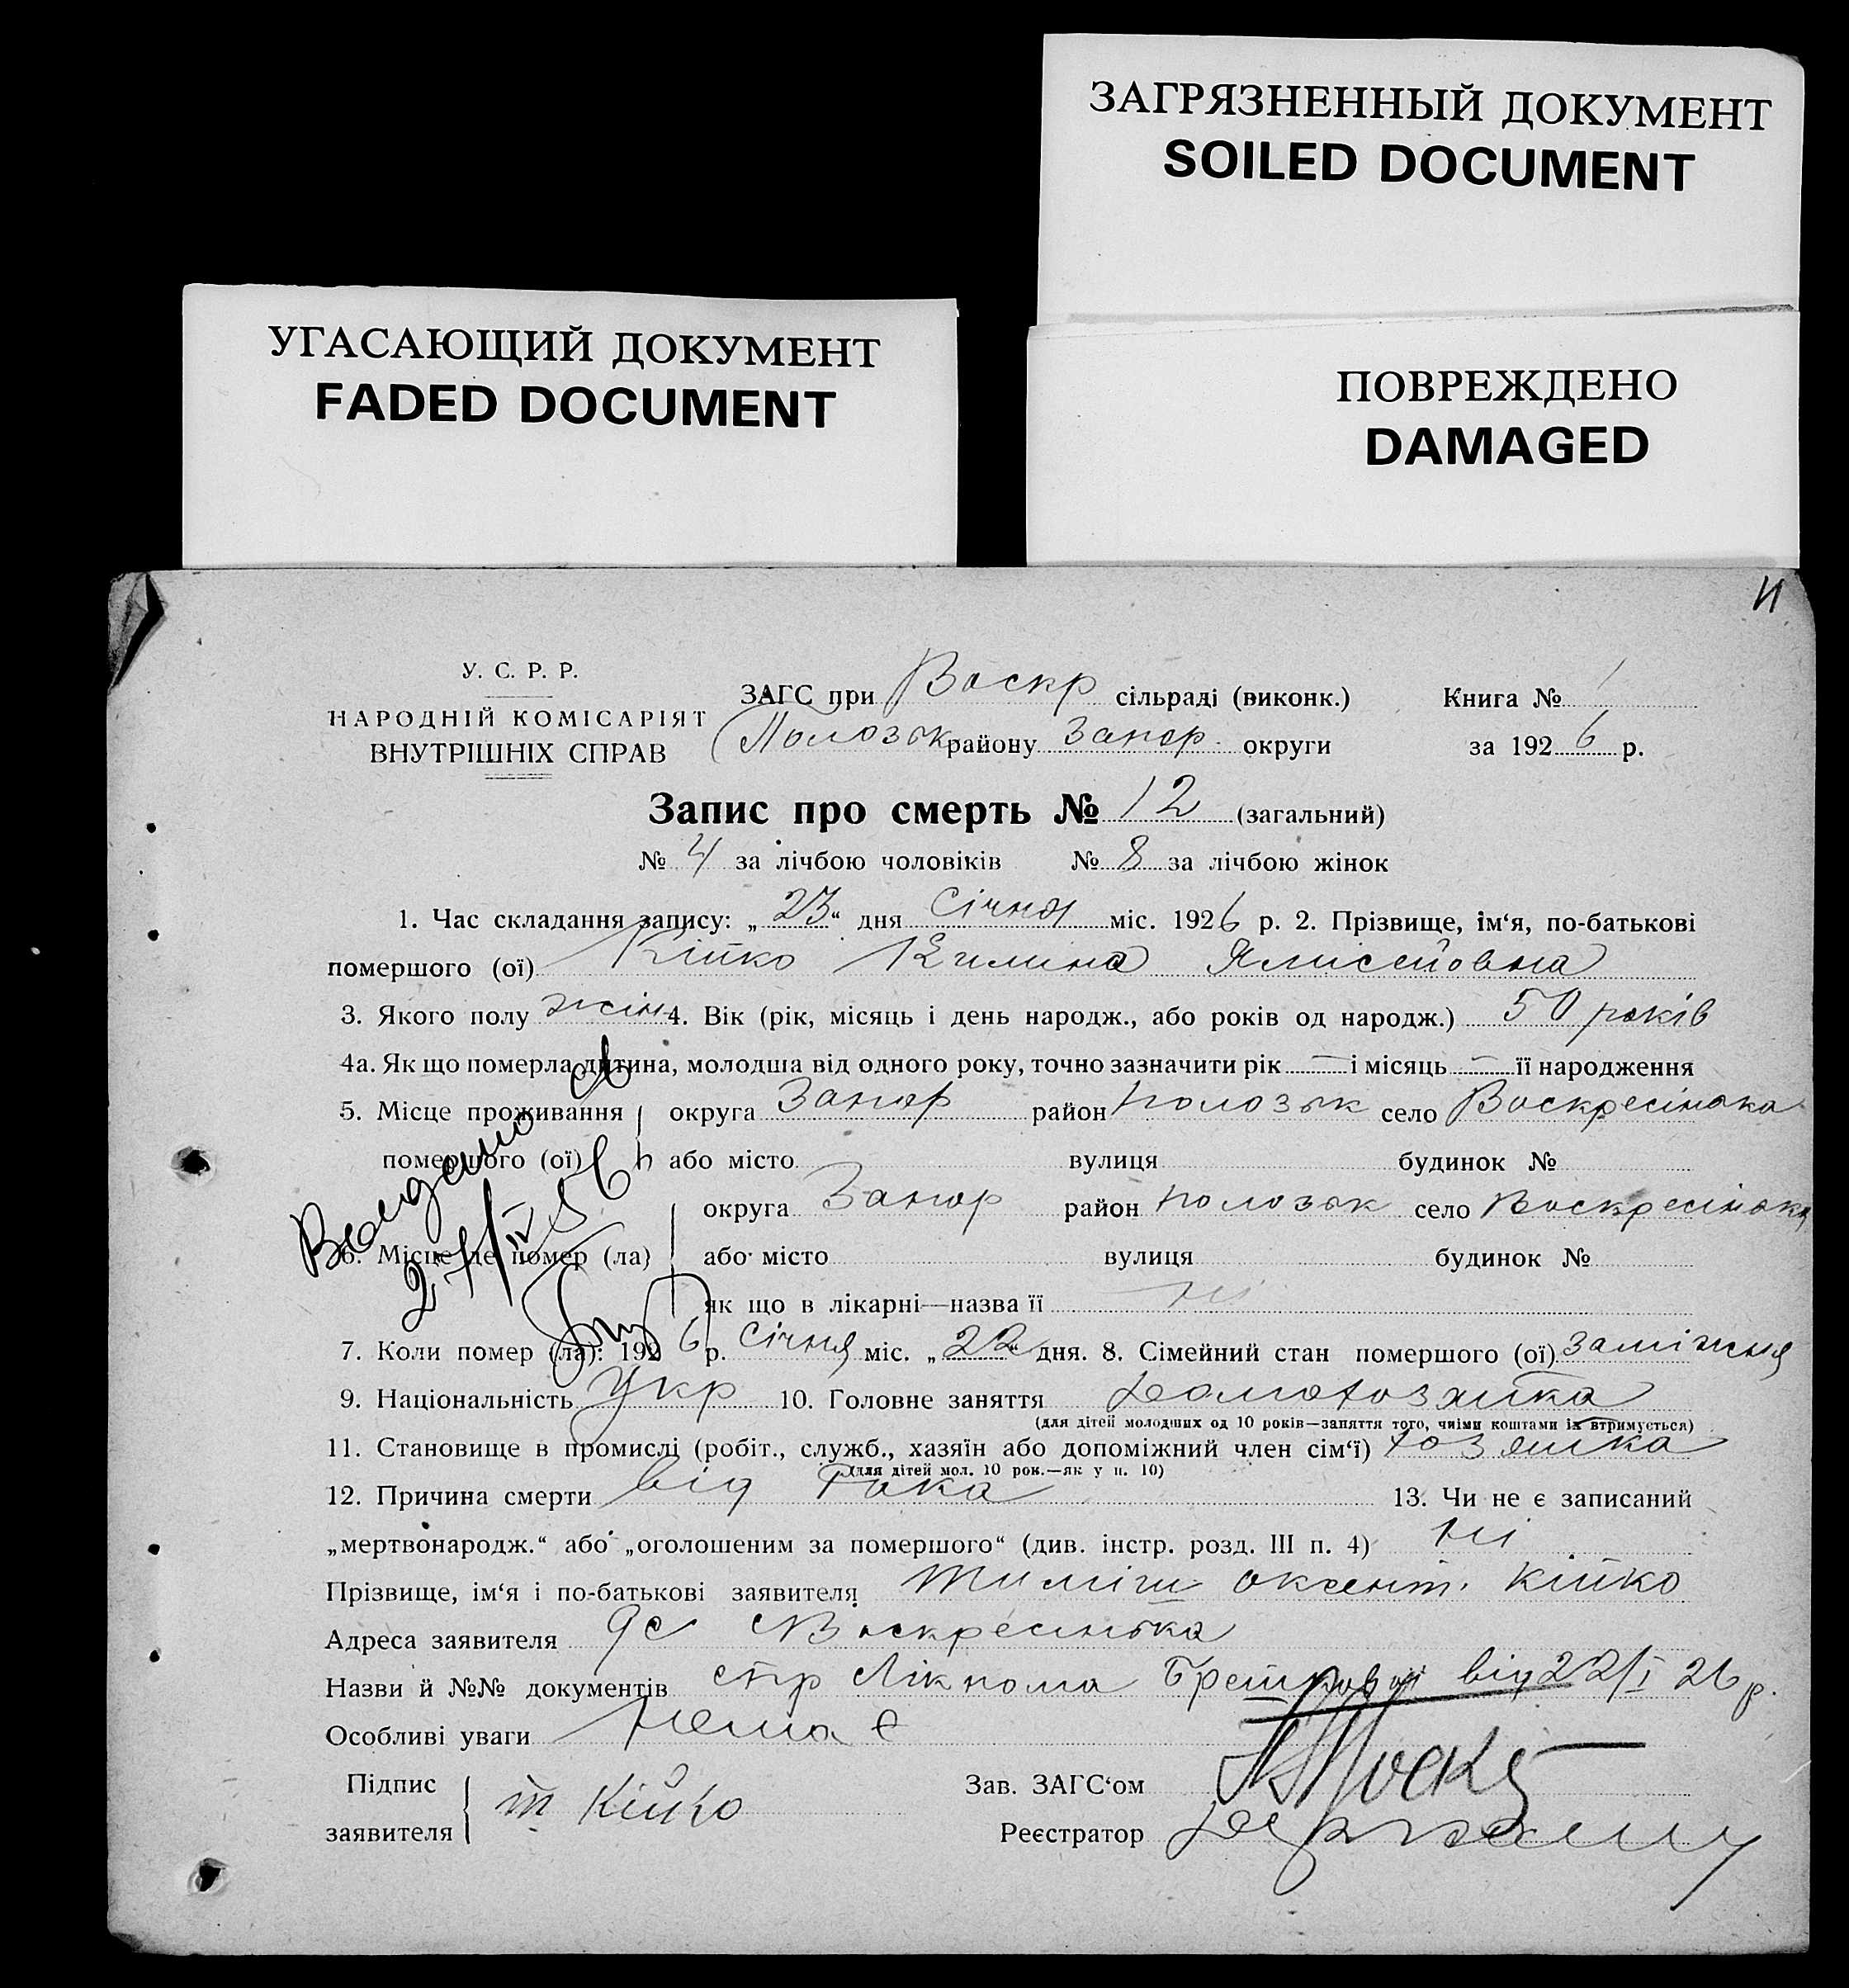 ЗАГРЯЗНЕННЫЙ ДОКУМЕНТ
SOILED DOCUMENT
УГАСАЮЩИЙ ДОКУМЕНТ
FADED DOCUMENT
ПОВРЕЖДЕНО
DAMAGED
У. С. Р. Р.
НАРОДНІЙ КОМІСАРІЯТ
ВНУТРІШНІХ СПРАВ
ЗАГС при Воскр сільраді (виконк.) Книга № 1
Полозьк району Запор. округи за 1926 р.
Запис про смерть № 12 (загальний)
№ 4 за лічбою чоловіків № 8 за лічбою жінок
1. Час складання запису: „23“ дня Січня міс. 1926 р. 2. Прізвище, ім‘я, по-батькові
помершого (ої) Кійко Килина
3. Якого полу жін 4. Вік (рік, місяць і день народж., або років од народж.) 50 років
4а. Як що померла дитина, молодша від одного року, точно зазначити рік — і місяць — її народження
5. Місце проживання округа Запор район Полозьк село Воскресінька
помершого (ої) або місто вулиця будинок №
округа Запор район Полозьк село Воскресінька
6. Місце де помер (ла) або місто вулиця будинок №
як що в лікарні—назва її ні
7. Коли помер (ла): 1926 р. Січня міс. „22“ дня. 8. Сімейний стан помершого (ої) заміжня
9. Національність Укр 10. Головне заняття домохозяйка
(для дітей молодших од 10 років—заняття того, чиїми коштами їх втримується)
11. Становище в промислі (робіт., служб., хазяїн або допоміжний член сім‘ї) хозяйка
(для дітей мол. 10 рок.—як у п. 10)
12. Причина смерти від Рака 13. Чи не є записаний
„мертвонародж.“ або „оголошеним за помершого“ (див. інстр. розд. III п. 4) ні
Прізвище, ім‘я і по-батькові заявителя Тиміш оксент. Кійко
Адреса заявителя с Воскресінька
Назви й №№ документів Лікпома від 22/I 26 р.
Особливі уваги Немає
Підпис
заявителя т Кійко
Зав. ЗАГС‘ом
Реєстратор